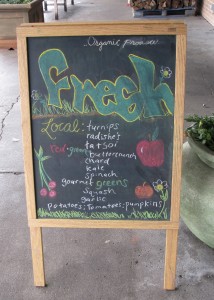 Organic produce
fresh
Local: turnips
radishes
tatsoi
red+green butter crunch
chard
kale
spinach
gourmet greens
Squash
garlic
potatoes; tomatoes; pumpkins